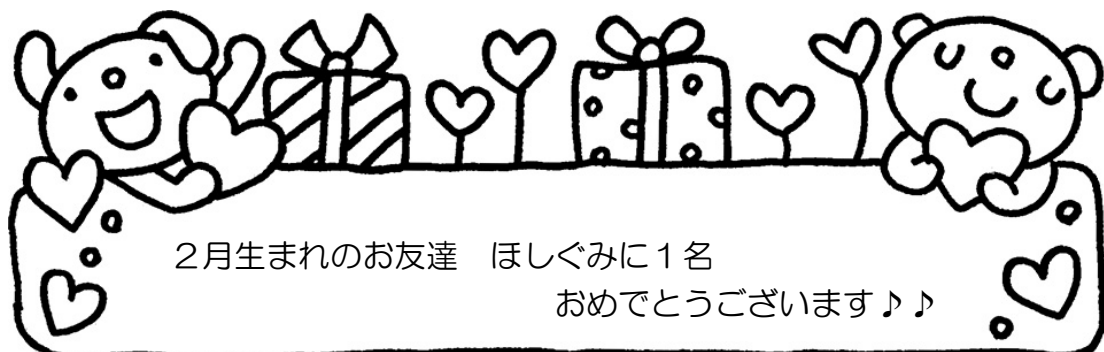 ２月生まれのお友達　ほしぐみに１名
おめでとうございます♪♪